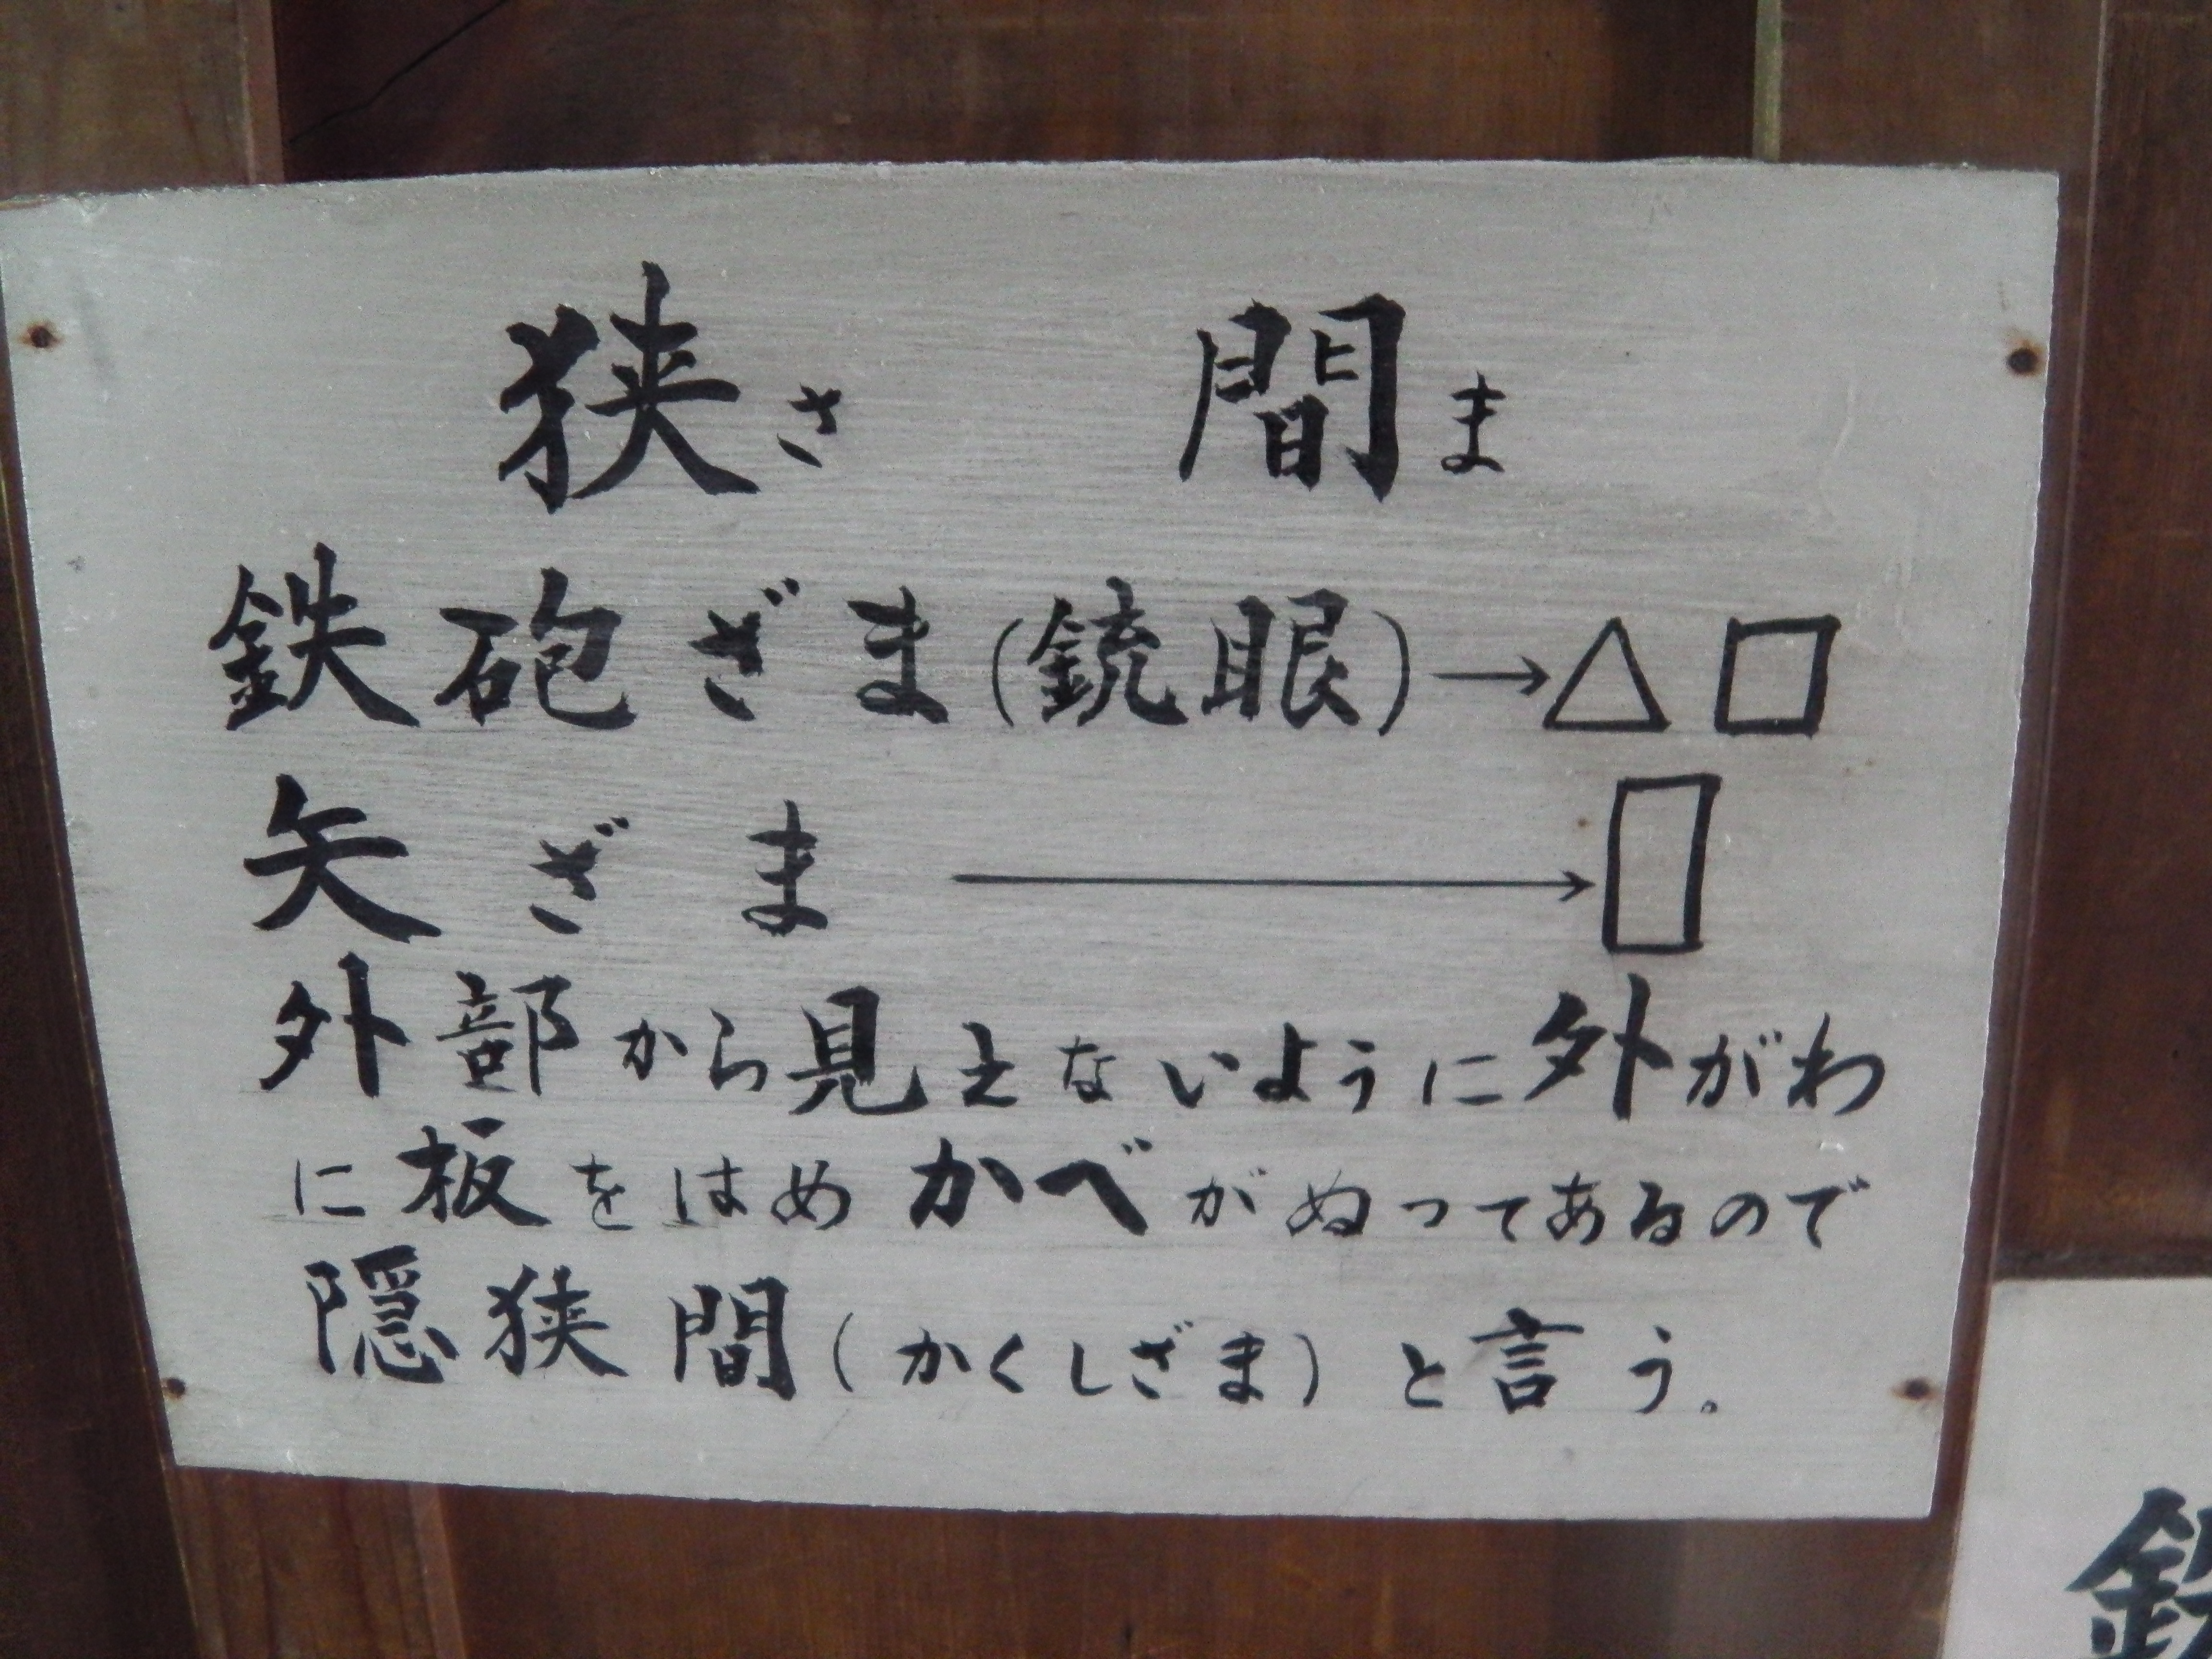 狭さ 間ま
鉄砲ざま(銃眼)→△□
矢ざま→▯
外部から見えないように外がわ
に板をはめかべがぬってあるので
隠狭間(かくしざま)と言う。
鉄